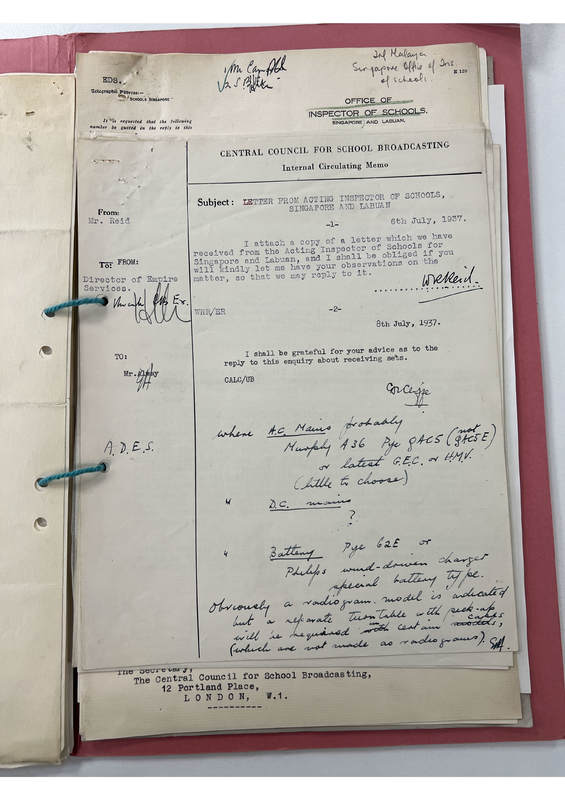 EDS.
Telegraphic Address:—
"SCHOOLS SINGAPORE"
It is requested that the following
number be quoted in the reply to this
Singapore Office of Ins
of schools.
K 129
OFFICE OF
INSPECTOR OF SCHOOLS,
SINGAPORE AND LABUAN.
CENTRAL COUNCIL FOR SCHOOL BROADCASTING
Internal Circulating Memo
Subject: LETTER FROM ACTING INSPECTOR OF SCHOOLS,
SINGAPORE AND LABUAN
From:
Mr. Reid
-1-
6th July, 1937.
I attach a copy of a letter which we have
received from the Acting Inspector of Schools for
Singapore and Labuan, and I shall be obliged if you
will kindly let me have your observations on the
matter, so that we may reply to it.
To:
FROM:
Director of Empire
Services.
WRReid.
WRR/ER
-2-
8th July, 1937.
TO:
I shall be grateful for your advice as to the
reply to this enquiry about receiving sets.
Mr.
CALC/UB
A.D.E.S.
where A.C. Mains probably
Murphy A36 Pye QAC5 (not QAC5E)
or latest G.E.C. or H.M.V.
(little to choose)
" D.C. mains
?
" Battery Pye 62E or
Philips wind-driven charger
special battery type.
Obviously a radiogram model is indicated
but a separate turntable with pick-up
will be required in certain cases
(which are not made as radiograms).
The Secretary,
The Central Council for School Broadcasting,
12 Portland Place,
LONDON, W.1.